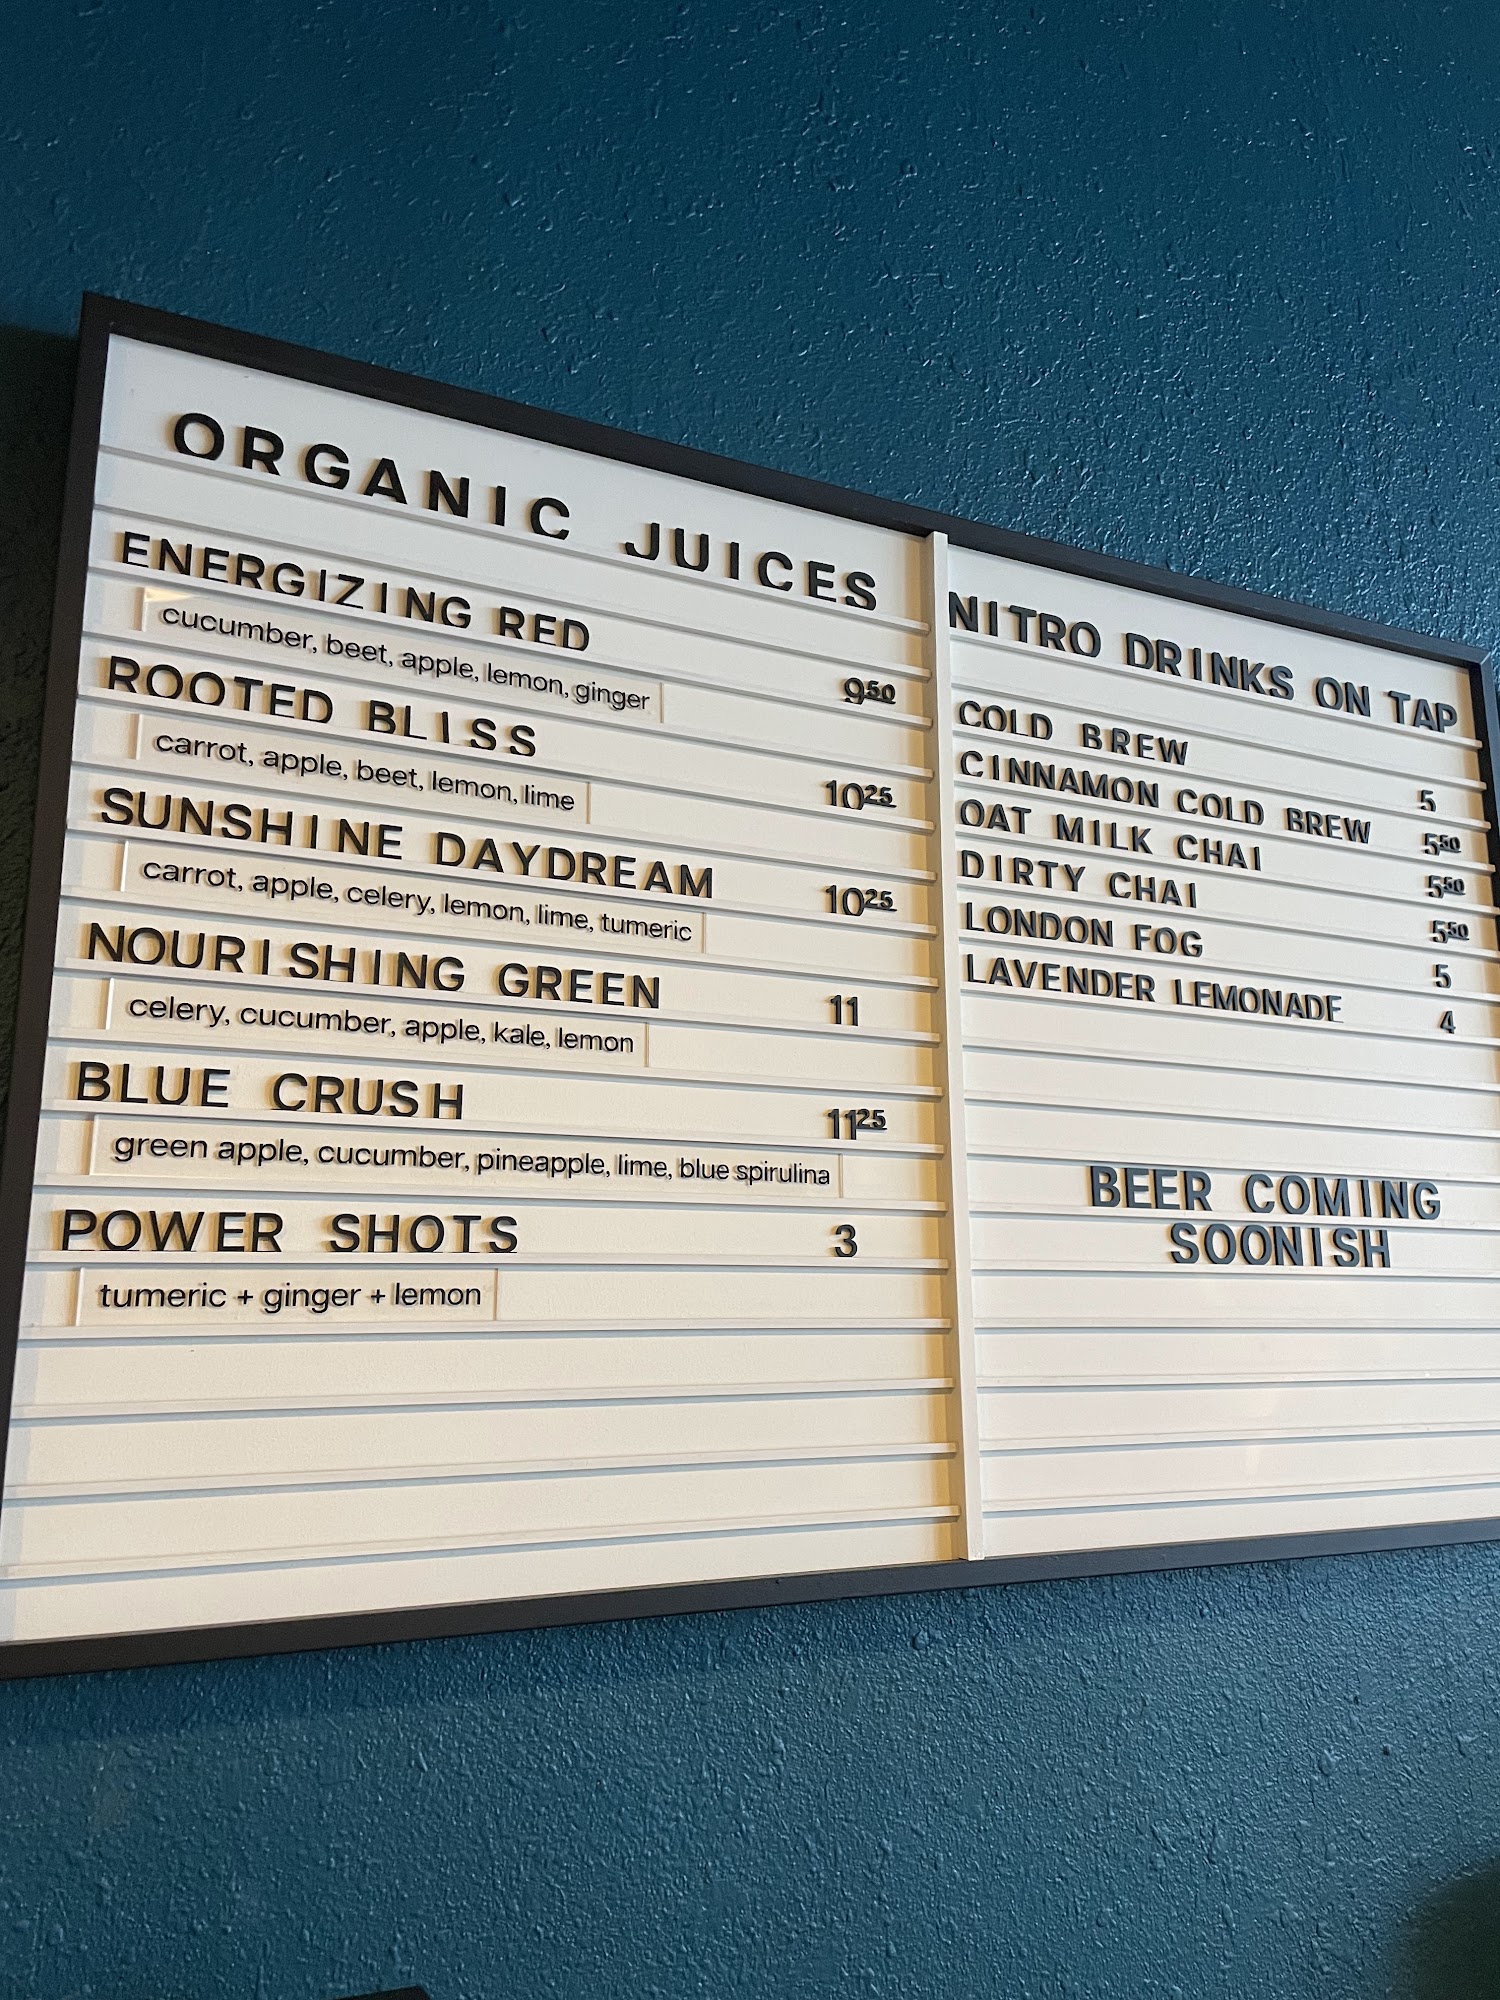 ORGANIC JUICES
ENERGIZING RED 9⁵⁰
cucumber, beet, apple, lemon, ginger
ROOTED BLISS 10²⁵
carrot, apple, beet, lemon, lime
SUNSHINE DAYDREAM 10²⁵
carrot, apple, celery, lemon, lime, tumeric
NOURISHING GREEN 11
celery, cucumber, apple, kale, lemon
BLUE CRUSH 11²⁵
green apple, cucumber, pineapple, lime, blue spirulina
POWER SHOTS 3
tumeric + ginger + lemon
NITRO DRINKS ON TAP
COLD BREW 5
CINNAMON COLD BREW 5⁵⁰
OAT MILK CHAI 5⁵⁰
DIRTY CHAI 5⁵⁰
LONDON FOG 5
LAVENDER LEMONADE 4
BEER COMING
SOONISH